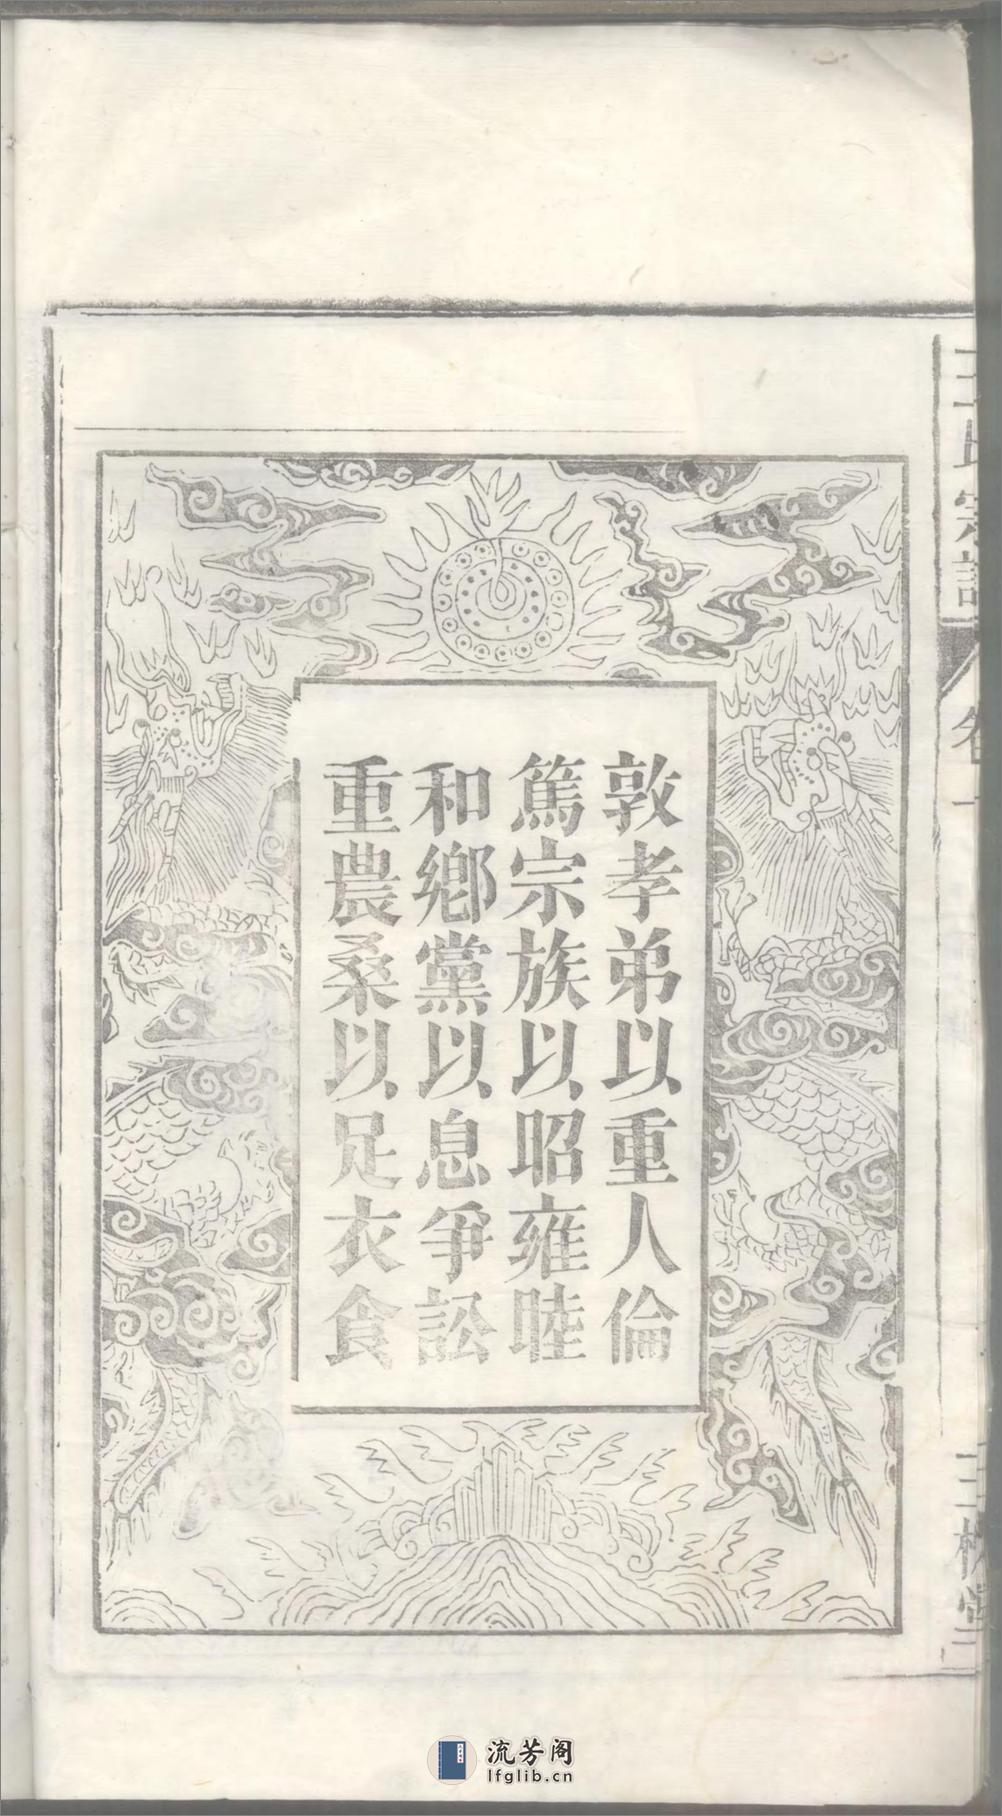 敦孝弟以重人倫
篤宗族以昭雍睦
和鄉黨以息爭訟
重農桑以足衣食
王氏宗譜
卷一
三槐堂
流芳阁
lfglib.cn